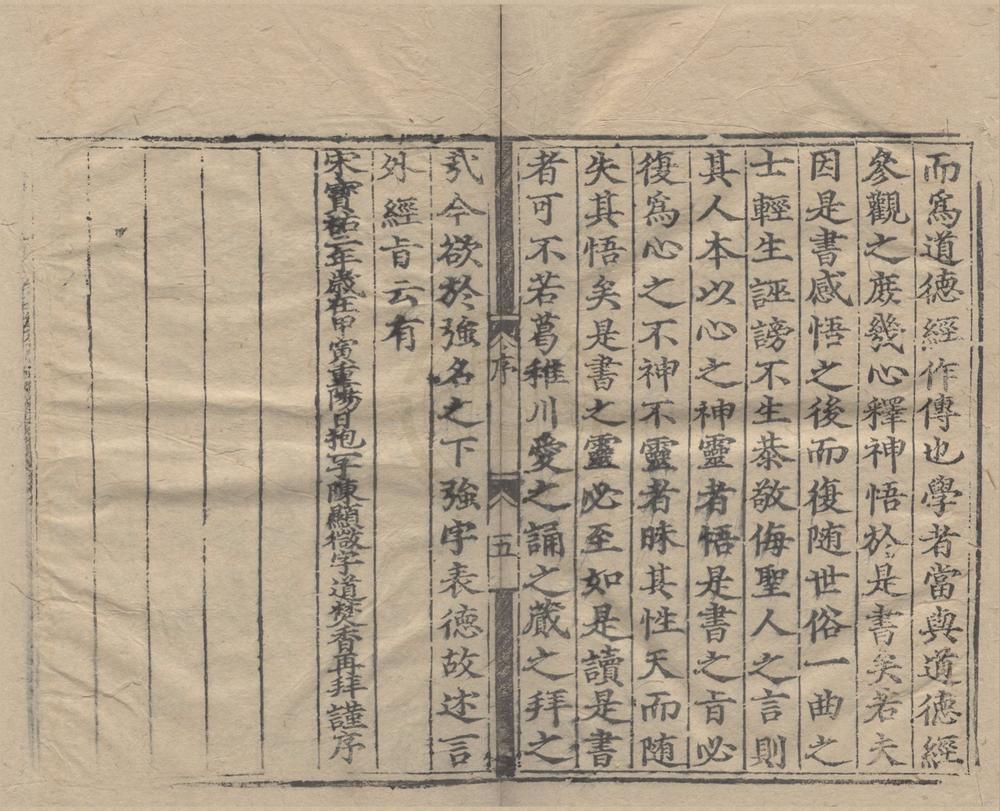 而爲道德經作傳也學者當與道德經
參觀之庻幾心釋神悟於是書矣若夫
因是書感悟之後而復随世俗一曲之
士輕生誣謗不生恭敬侮聖人之言則
其人本以心之神靈者悟是書之旨必
復爲心之不神不靈者昧其性天而随
失其悟矣是書之靈必至如是讀是書
者可不若葛稚川愛之誦之藏之拜之
序
五
今欲於強名之下強字表德故述言
外經旨云有
宋寶祐二年歳在甲寅重陽日抱一子陳顯微字道焚香再拜謹序